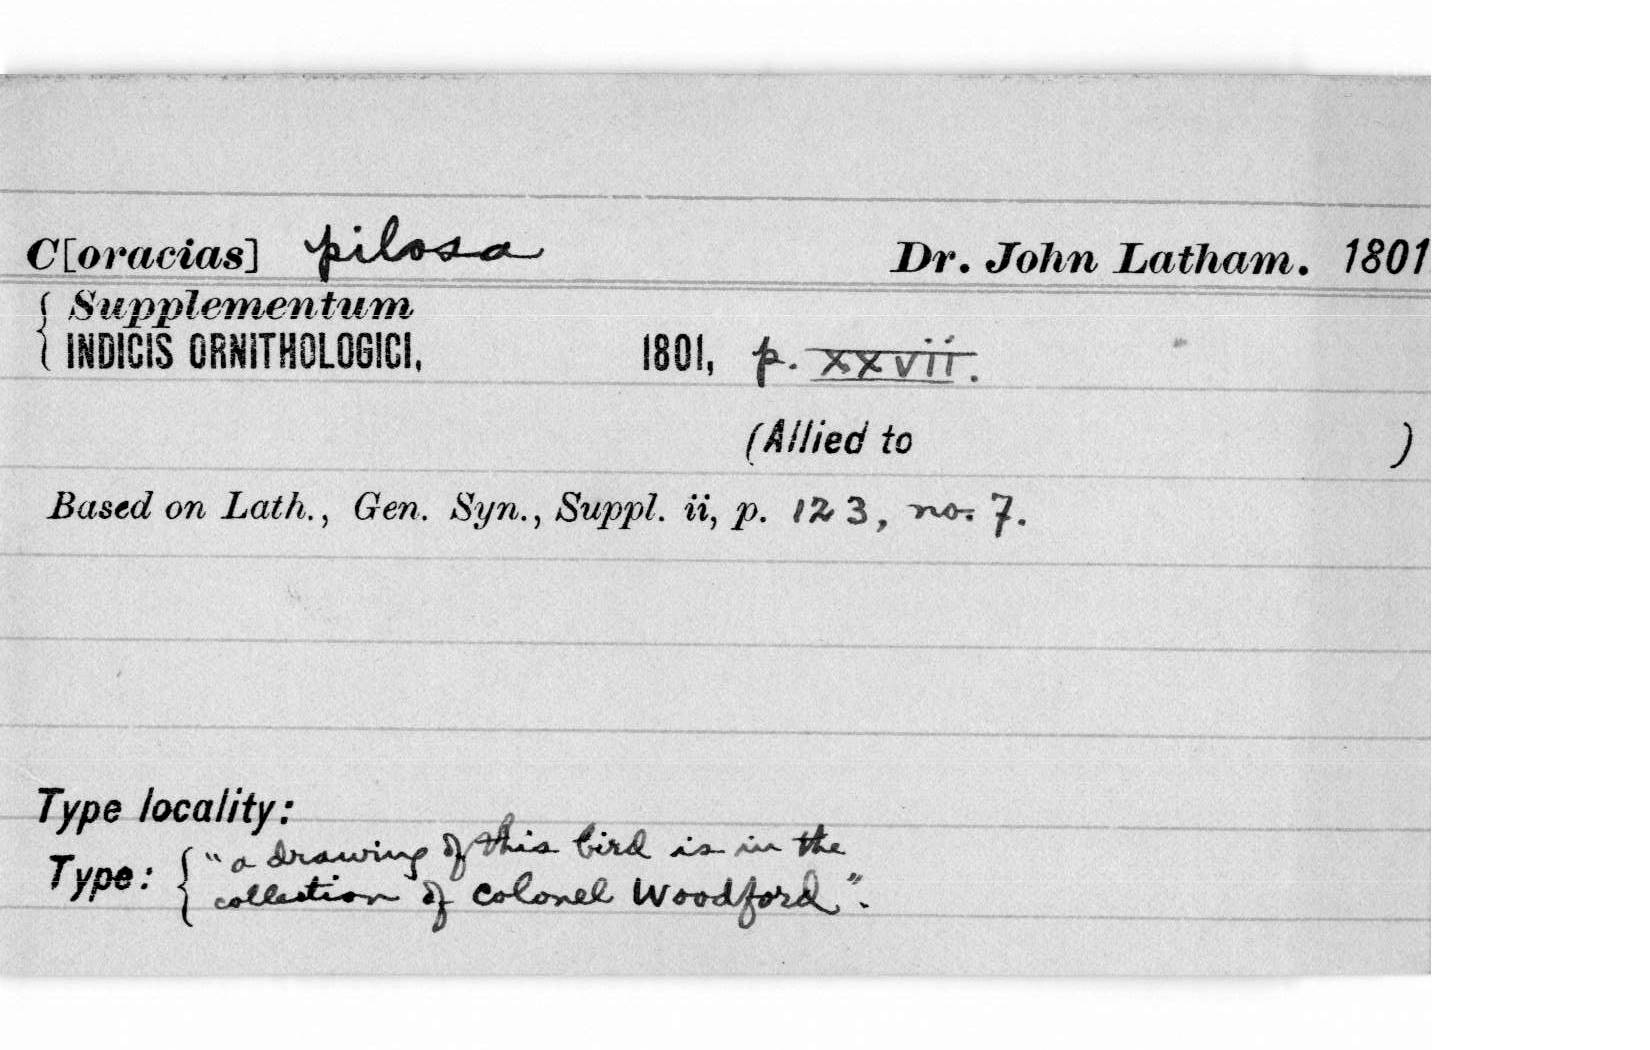 C[oracias] pilosa Dr. John Latham. 1801
Supplementum
INDICIS ORNITHOLOGICI, 1801, p. xxvii.
(Allied to )
Based on Lath., Gen. Syn., Suppl. ii, p. 123, no. 7.
Type locality:
Type: { "a drawing of this bird is in the
collection of Colonel Woodford".